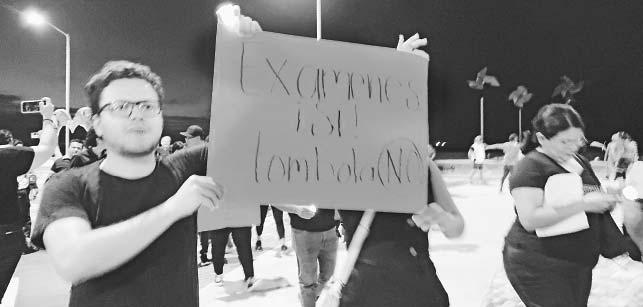 Examenes
¡SI!
Tombola (NO)